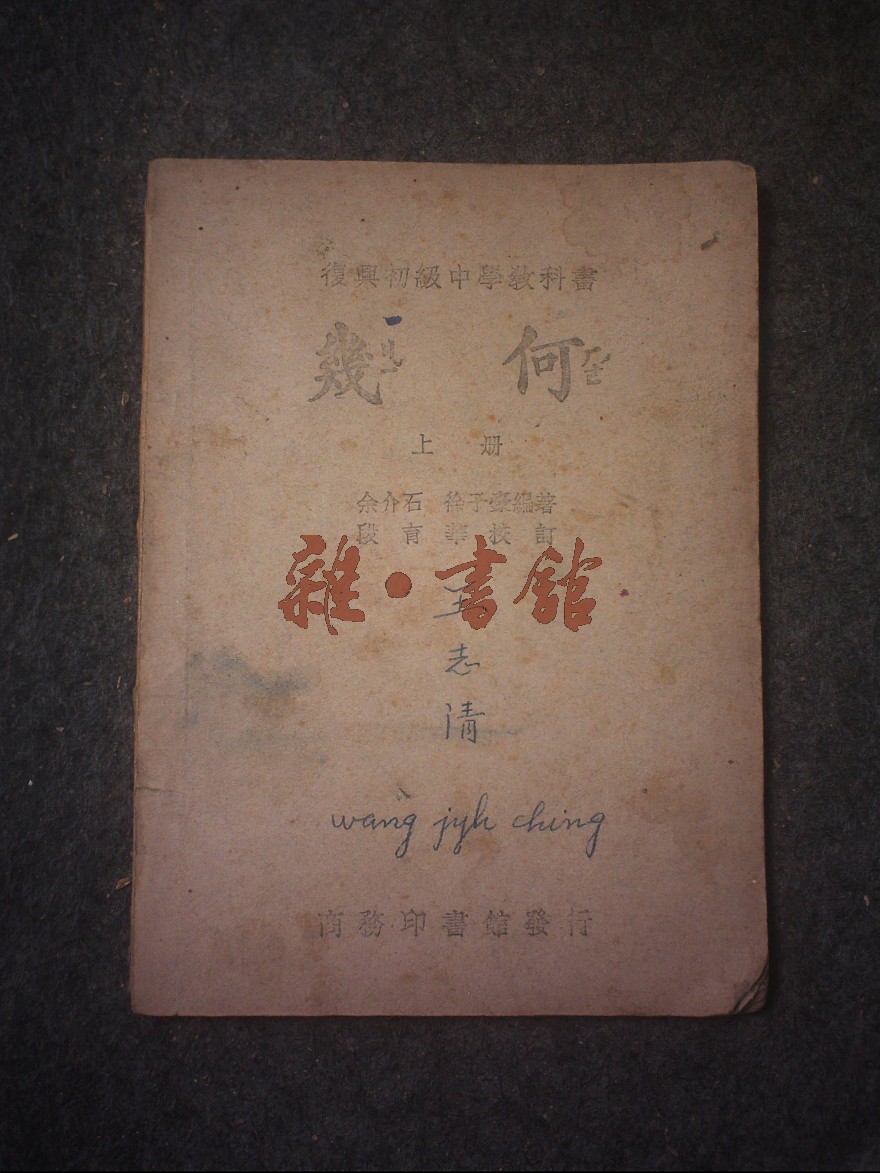 復興初級中學教科書
幾何
上册
余介石 徐子豪編著
段育華校訂
雜·書館
王
志
清
wang jyh ching
商務印書館發行